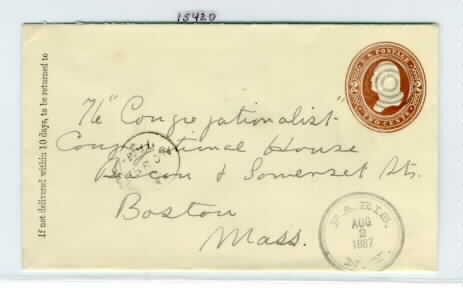 15420
If not delivered within 10 days, to be returned to
U.S. POSTAGE
TWO CENTS
The "Congregationalist"
Congregational House
Beacon & Somerset Sts.
Boston
Mass.
PARIS.
AUG
2
1887